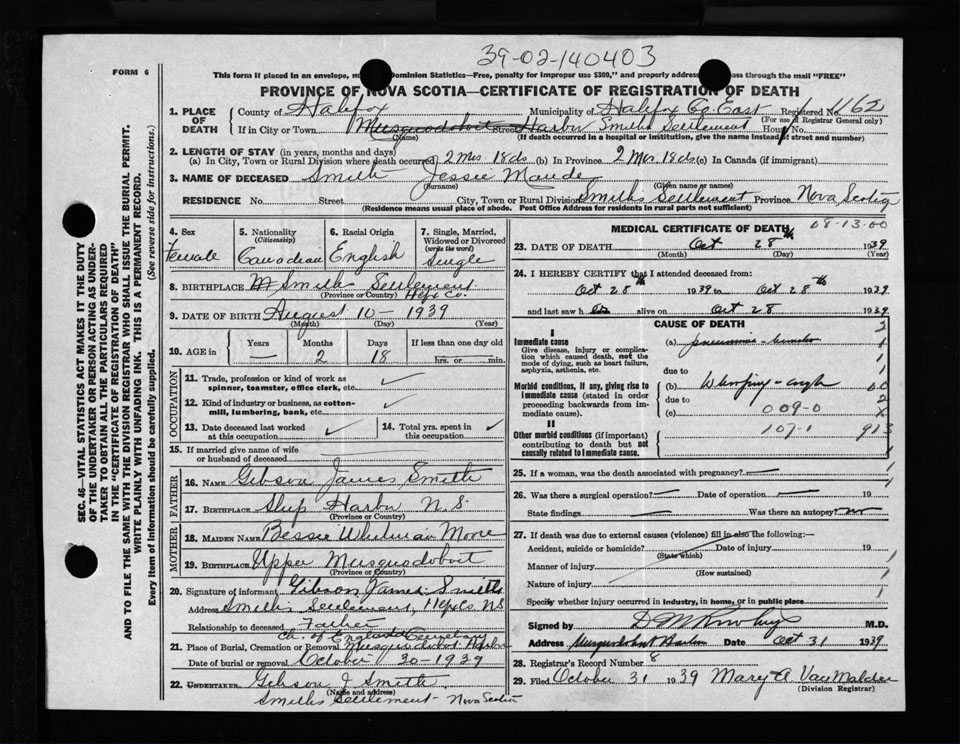 39-02-140403
FORM 6
This form if placed in an envelope, Dominion Statistics—Free, penalty for improper use $300," and properly address through the mail "FREE"
PROVINCE OF NOVA SCOTIA—CERTIFICATE OF REGISTRATION OF DEATH
1. PLACE OF DEATH County of Halifax Municipality of Halifax Co. East Registered No. 1162
(For use of Registrar General only)
If in City or Town Musquodoboit Street Harbor Smiths Settlement Hour
(If death occurred in a hospital or institution, give the name instead of street and number)
2. LENGTH OF STAY (in years, months and days)
(a) In City, Town or Rural Division where death occurred 2 Mos. 18 ds (b) In Province 2 Mos. 18 ds (c) In Canada (if immigrant)
3. NAME OF DECEASED Smith Jessie Maude
(Surname) (Given name or names)
RESIDENCE No. Street City, Town or Rural Division Smiths Settlement Province Nova Scotia
(Residence means usual place of abode. Post Office Address for residents in rural parts not sufficient)
SEC. 46—VITAL STATISTICS ACT MAKES IT THE DUTY
OF THE UNDERTAKER OR PERSON ACTING AS UNDER-
TAKER TO OBTAIN ALL THE PARTICULARS REQUIRED
IN THE "CERTIFICATE OF REGISTRATION OF DEATH"
AND TO FILE THE SAME WITH THE DIVISION REGISTRAR WHO SHALL ISSUE THE BURIAL PERMIT.
WRITE PLAINLY WITH UNFADING INK. THIS IS A PERMANENT RECORD.
Every item of information should be carefully supplied. (See reverse side for instructions.)
4. Sex 5. Nationality 6. Racial Origin 7. Single, Married,
(Citizenship) Widowed or Divorced
(write the word)
Female Canadian English Single
8. BIRTHPLACE Smith Settlement
(Province or Country) Hfx Co.
9. DATE OF BIRTH August 10 - 1939
(Month) (Day) (Year)
10. AGE in Years Months Days If less than one day old
— 2 18 hrs. or min.
OCCUPATION
11. Trade, profession or kind of work as
spinner, teamster, office clerk, etc. ✓
12. Kind of industry or business, as cotton-
mill, lumbering, bank, etc. ✓
13. Date deceased last worked at this occupation ✓ 14. Total yrs. spent in this occupation ✓
15. If married give name of wife
or husband of deceased
FATHER
16. NAME Gibson James Smith
17. BIRTHPLACE Ship Harbor N.S
(Province or Country)
MOTHER
18. MAIDEN NAME Bessie Whitman Moore
19. BIRTHPLACE Upper Musquodoboit
(Province or Country)
20. Signature of informant Gibson James Smith
Address Smith's Settlement, Hfx Co. NS
Relationship to deceased Father
Ch. of England Cemetery
21. Place of Burial, Cremation or Removal Musquodoboit Harbor
Date of burial or removal October 30-1939
22. UNDERTAKER Gibson J Smith
(Name and address)
Smiths Settlement - Nova Scotia
MEDICAL CERTIFICATE OF DEATH
08-13-00
23. DATE OF DEATH Oct 28th 1939
(Month) (Day) (Year)
24. I HEREBY CERTIFY that I attended deceased from:
Oct 28th 1939 to Oct 28th 1939
and last saw h alive on Oct 28 1939
CAUSE OF DEATH
I
Immediate cause (a)
Give disease, injury or complica-
tion which caused death, not the
mode of dying, such as heart failure,
asphyxia, asthenia, etc.
due to
Morbid conditions, if any, giving rise to (b) Whooping-cough
immediate cause (stated in order
proceeding backwards from im-
mediate cause).
due to
(c) 009-0
II
107-1 913
Other morbid conditions (if important)
contributing to death but not
causally related to immediate cause.
25. If a woman, was the death associated with pregnancy? —
26. Was there a surgical operation? — Date of operation — 19
State findings Was there an autopsy? no
27. If death was due to external causes (violence) fill in also the following:—
Accident, suicide or homicide? Date of injury 19
(State which)
Manner of injury
(How sustained)
Nature of injury
Specify whether injury occurred in industry, in home, or in public place
Signed by M.D.
Address Musquodoboit Harbor Date Oct 31 1939
28. Registrar's Record Number 8
29. Filed October 31 1939 Mary A Van Malder
(Division Registrar)